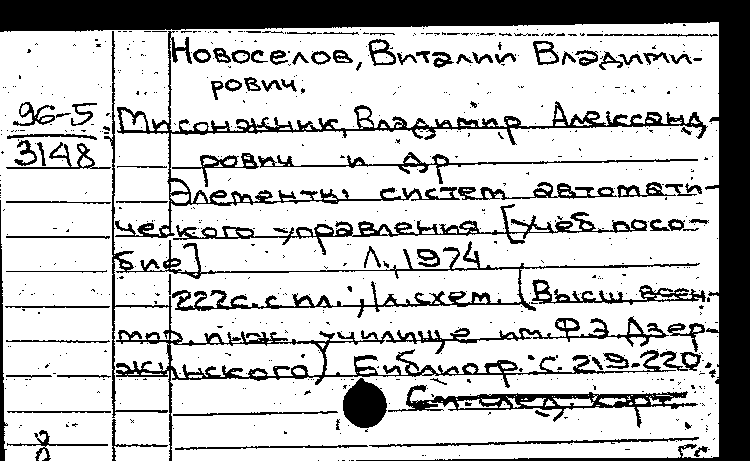 Новоселов, Виталий Владими-
рович.
96-5
3148
Мисожник, Владимир Александ-
рович и др.
Элементы систем автомати-
ческого управления. [Учеб. посо-
бие] Л., 1974.
222с. с ил.; 1л. схем. (Высш. воен.-
мор. инж. училище им. Ф.Э. Дзер-
жинского). Библиогр.: с. 219-220.
См. след. карт.
8